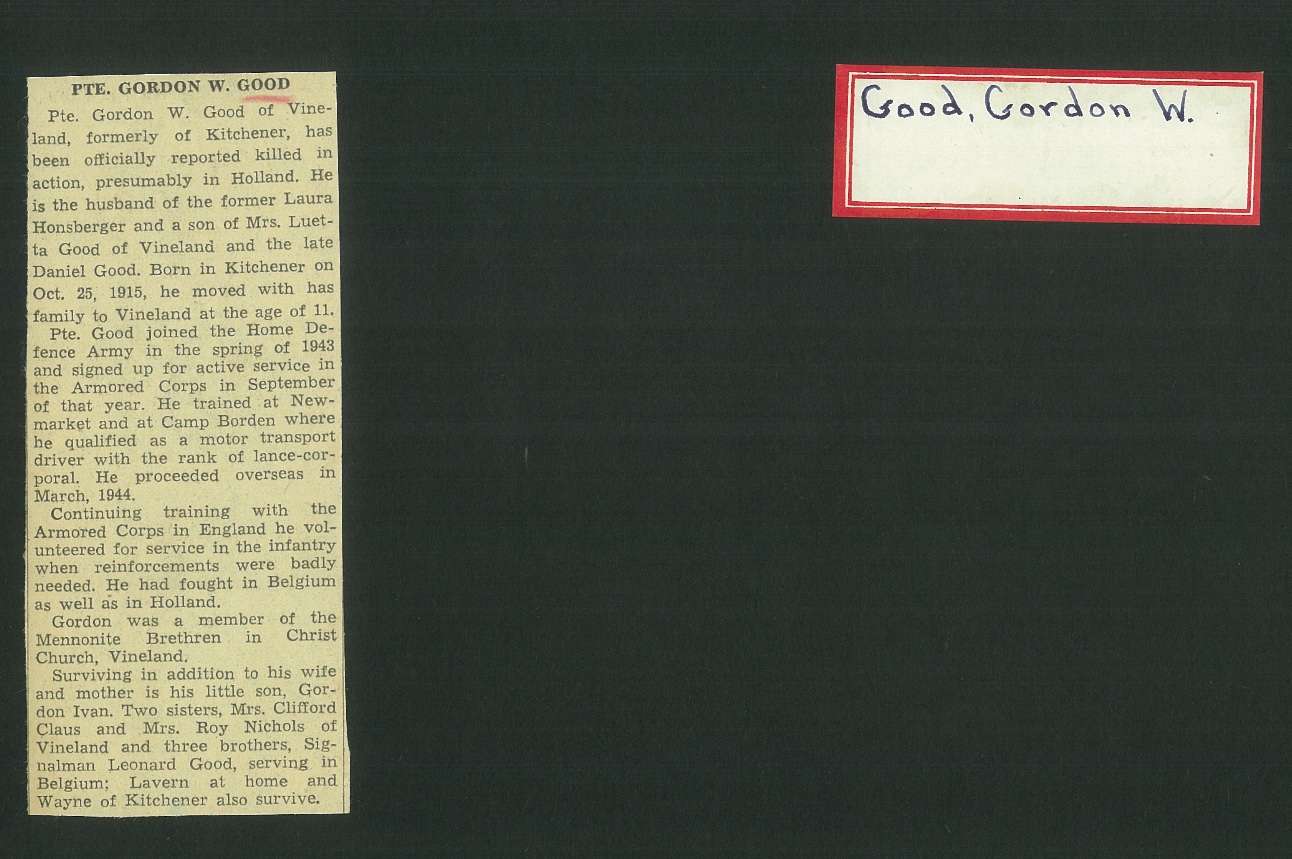 PTE. GORDON W. GOOD
Pte. Gordon W. Good of Vine-
land, formerly of Kitchener, has
been officially reported killed in
action, presumably in Holland. He
is the husband of the former Laura
Honsberger and a son of Mrs. Luet-
ta Good of Vineland and the late
Daniel Good. Born in Kitchener on
Oct. 25, 1915, he moved with has
family to Vineland at the age of 11.
Pte. Good joined the Home De-
fence Army in the spring of 1943
and signed up for active service in
the Armored Corps in September
of that year. He trained at New-
market and at Camp Borden where
he qualified as a motor transport
driver with the rank of lance-cor-
poral. He proceeded overseas in
March, 1944.
Continuing training with the
Armored Corps in England he vol-
unteered for service in the infantry
when reinforcements were badly
needed. He had fought in Belgium
as well as in Holland.
Gordon was a member of the
Mennonite Brethren in Christ
Church, Vineland.
Surviving in addition to his wife
and mother is his little son, Gor-
don Ivan. Two sisters, Mrs. Clifford
Claus and Mrs. Roy Nichols of
Vineland and three brothers, Sig-
nalman Leonard Good, serving in
Belgium; Lavern at home and
Wayne of Kitchener also survive.
Good, Gordon W.